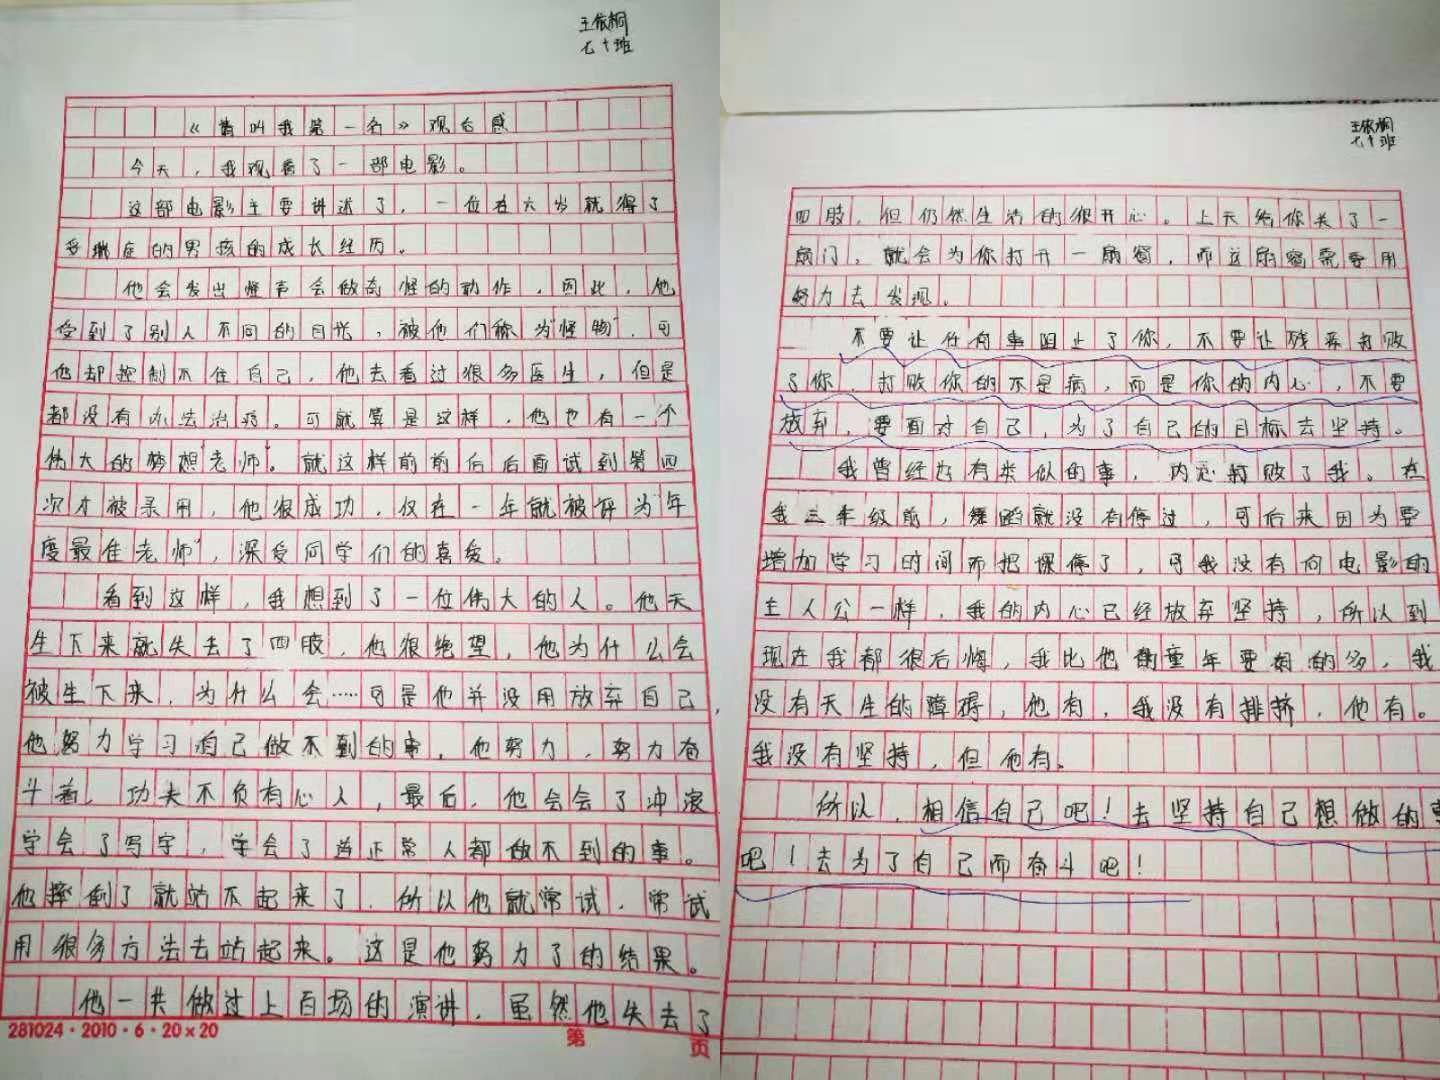 王依桐
七十班
《叫我第一名》观后感
今天，我观看了一部电影。
这部电影主要讲述了，一位在六岁就得了
妥瑞症的男孩的成长经历。
他会发出怪声会做奇怪的动作，因此，他
受到了别人不同的目光，被他们称为"怪物"，可
他却控制不住自己，他去看过很多医生，但是
都没有办法治疗。可就算是这样，他也有一个
伟大的梦想"老师"。就这样前前后后面试到第四
次才被录用，他很成功，仅在一年就被评为"年
度最佳老师"，深受同学们的喜爱。
看到这样，我想到了一位伟大的人。他天
生下来就失去了四肢，他很绝望，他为什么会
被生下来，为什么会……可是他并没用放弃自己，
他努力学习自己做不到的事，他努力，努力奋
斗着，功夫不负有心人，最后，他会会了冲浪
学会了写字，学会了当正常人都做不到的事。
他摔倒了就站不起来了，所以他就常试，常试
用很多方法去站起来。这是他努力了的结果。
他一共做过上百场的演讲，虽然他失去了
281024·2010·6·20×20
第 页
王依桐
七十班
四肢，但仍然生活的很开心。上天给你关了一
扇门，就会为你打开一扇窗，而这扇窗需要用
努力去发现。
不要让任何事阻止了你，不要让残疾打败
了你，打败你的不是病，而是你的内心，不要
放弃，要面对自己，为了自己的目标去坚持。
我曾经也有类似的事，内心打败了我。在
我三年级前，舞蹈就没有停过，可后来因为要
增加学习时间而把课停了，可我没有向电影的
主人公一样，我的内心已经放弃坚持，所以到
现在我都很后悔，我比他的童年要好的多，我
没有天生的障碍，他有，我没有排挤，他有。
我没有坚持，但他有。
所以，相信自己吧！去坚持自己想做的事
吧！去为了自己而奋斗吧！